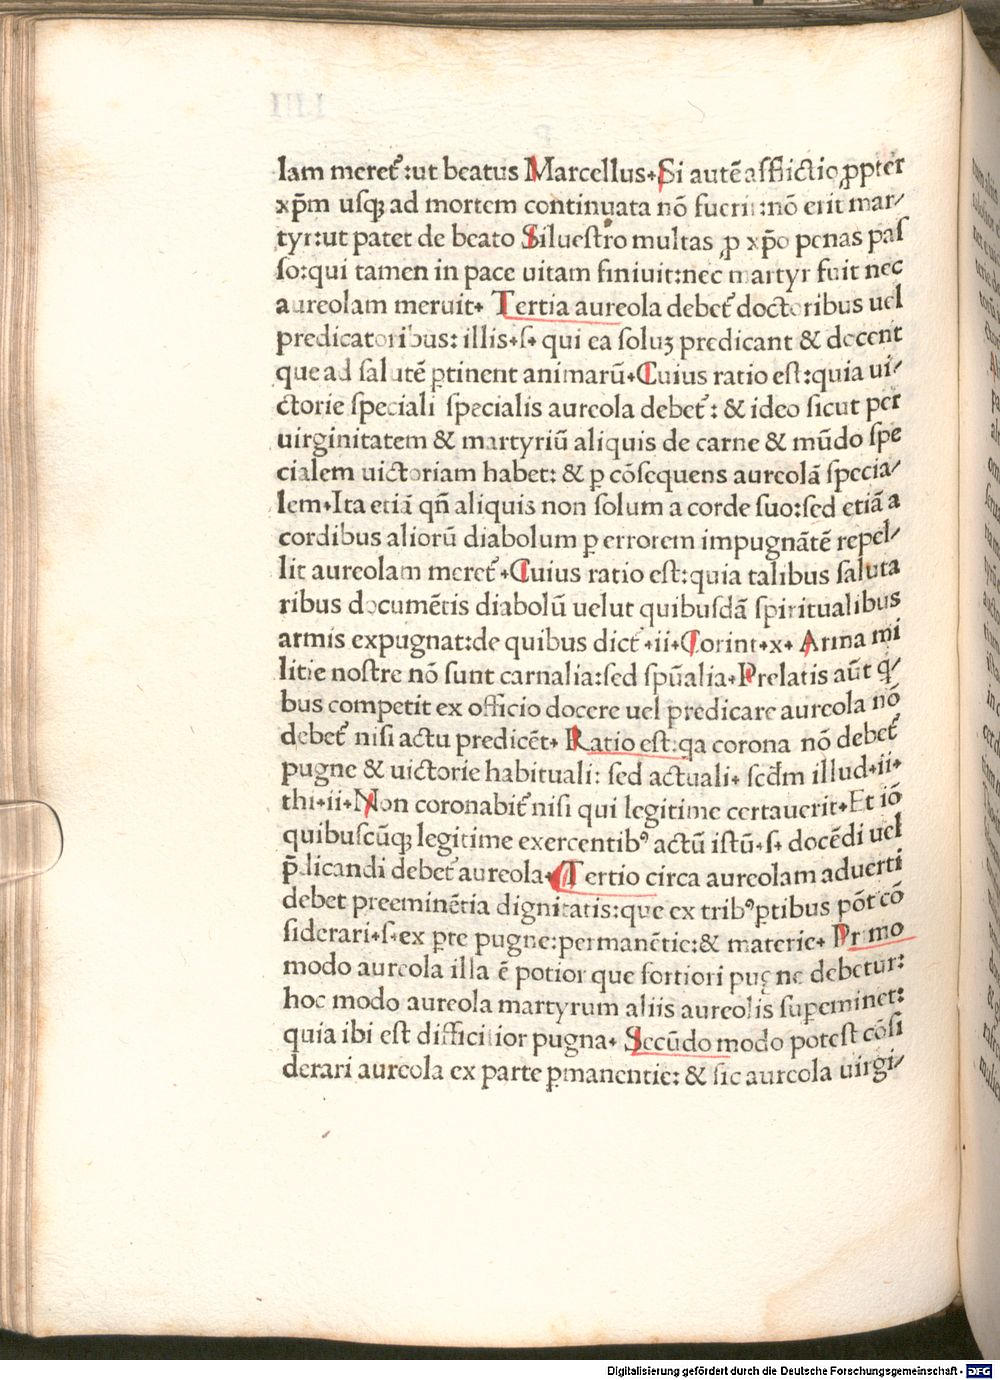 lam meret᷒:ut beatus Marcellus. Si autē afflictio ꝓpter
xp̄m usq; ad mortem continuata nō fuerit:nō erit mar/
tyr:ut patet de beato Siluestro multas ꝓ xp̄o penas pas
so:qui tamen in pace uitam finiuit:nec martyr fuit nec
aureolam meruit. Tertia aureola debet᷒ doctoribus uel
predicatoribus: illis.s. qui ea soluꝫ predicant & docent
que ad salutē ꝑtinent animarū. Cuius ratio est:quia ui/
ctorie speciali specialis aureola debet᷒: & ideo sicut per
uirginitatem & martyriū aliquis de carne & mūdo spe
cialem uictoriam habet: & ꝑ cōsequens aureolā specia/
lem. Ita etiā qn̄ aliquis non solum a corde suo:sed etiā a
cordibus aliorū diabolum ꝑ errorem impugnātē repel/
lit aureolam meret᷒. Cuius ratio est:quia talibus saluta
ribus documētis diabolū uelut quibusdā spiritualibus
armis expugnat:de quibus dict᷒.ii. Corint.x. Arma mi
litie nostre nō sunt carnalia:sed spūalia. Prelatis aūt q̄/
bus competit ex officio docere uel predicare aureola nō
debet᷒ nisi actu predicēt. Ratio est:qa corona nō debet᷒
pugne & uictorie habituali: sed actuali. scd̄m illud.ii.
thi.ii. Non coronabit᷒ nisi qui legitime certauerit. Et iō
quibuscūq; legitime exercentibꝰ actū istū.s. docēdi uel
p̄dicandi debet᷒ aureola. Tertio circa aureolam aduerti
debet preeminētia dignitatis:que ex tribꝰ ꝑtibus pōt cō
siderari.s. ex ꝑte pugne:permanētie:& materie. Primo
modo aureola illa ē potior que fortiori pugne debetur:
hoc modo aureola martyrum aliis aureolis suꝑeminet:
quia ibi est difficilior pugna. Secūdo modo potest cōsi
derari aureola ex parte ꝑmanentie: & sic aureola uirgi/
Digitalisierung gefördert durch die Deutsche Forschungsgemeinschaft - DFG